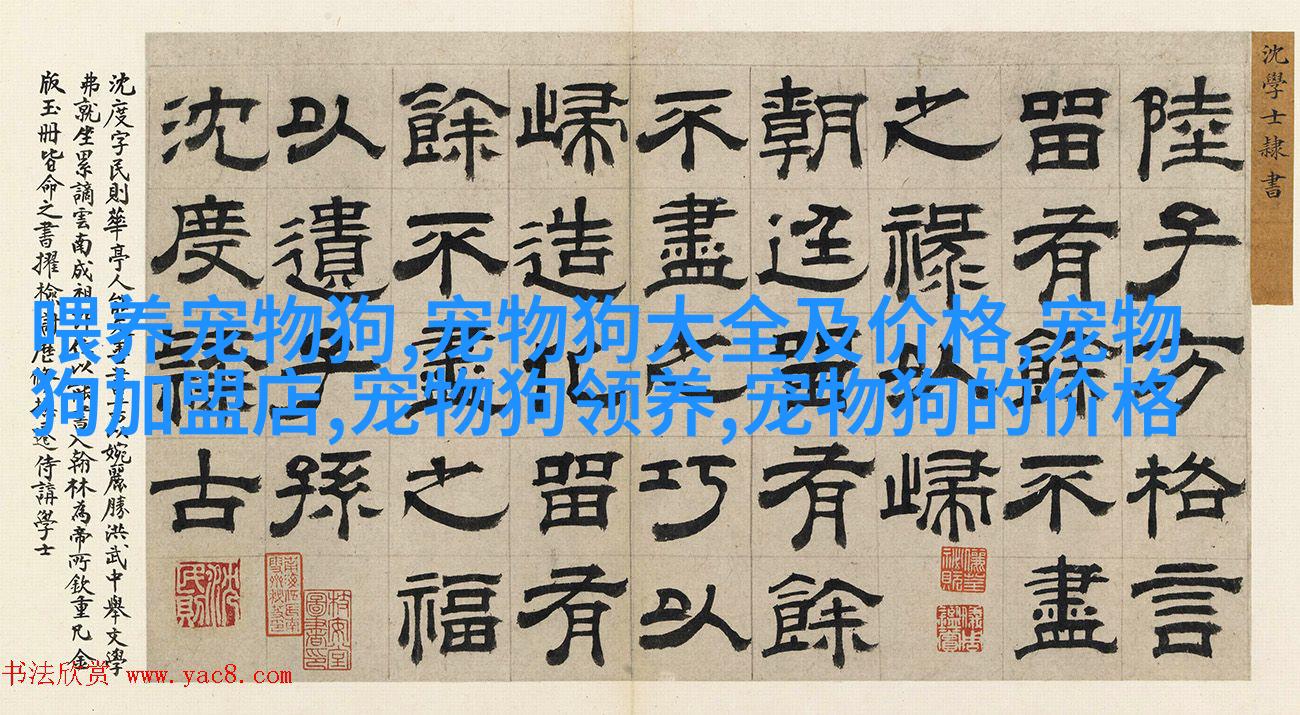 沈學士隸書
陸子方格言
畱有餘不盡
之祿以歸
朝廷畱有餘
不盡之巧以
歸造化畱有
餘不盡之福
以遺子孫
沈度古
沈度字民則華亭人能婉麗勝洪武中舉文學
弗就坐累謫雲南成祖以入翰林為帝所欽重凡金
版玉冊皆命之書擢檢歷侍講學士
喂养宠物狗,宠物狗大全及价格,宠物
狗加盟店,宠物狗领养,宠物狗的价格
书法欣赏 www.yac8.com